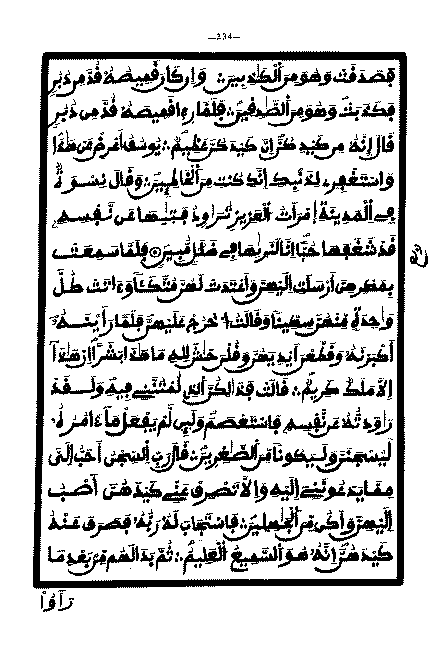 —234—
فصدقت وهو من الكذبين وإن كان قميصه قد من دبر
فكذبت وهو من الصدقين فلما رءا قميصه قد من دبر
قال إنه من كيدكن إن كيدكن عظيم يوسف أعرض عن هذا
واستغفري لذنبك إنك كنت من الخاطين وقال نسوة
في المدينة امرأت العزيز تراود فتيها عن نفسه
قد شغفها حبا إنا لنريها في ضلل مبين فلما سمعت
بمكرهن أرسلت إليهن وأعتدت لهن متكئا وءاتت كل
وحدة منهن سكينا وقالت اخرج عليهن فلما رأينه
أكبرنه وقطعن أيديهن وقلن حش لله ما هذا بشرا إن هذا
إلا ملك كريم قالت فذلكن الذي لمتنني فيه ولقد
رودته عن نفسه فاستعصم ولئن لم يفعل ما ءامره
ليسجنن وليكونا من الصغرين قال رب السجن أحب إلي
مما يدعونني إليه وإلا تصرف عني كيدهن أصب
إليهن وأكن من الجهلين فاستجاب له ربه فصرف عنه
كيدهن إنه هو السميع العليم ثم بدا لهم من بعد ما
رأوا